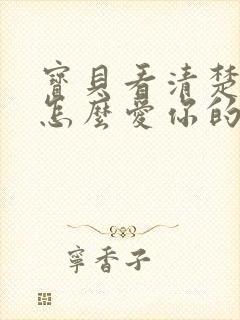 寶貝看清楚
怎麼愛你的
寧香子